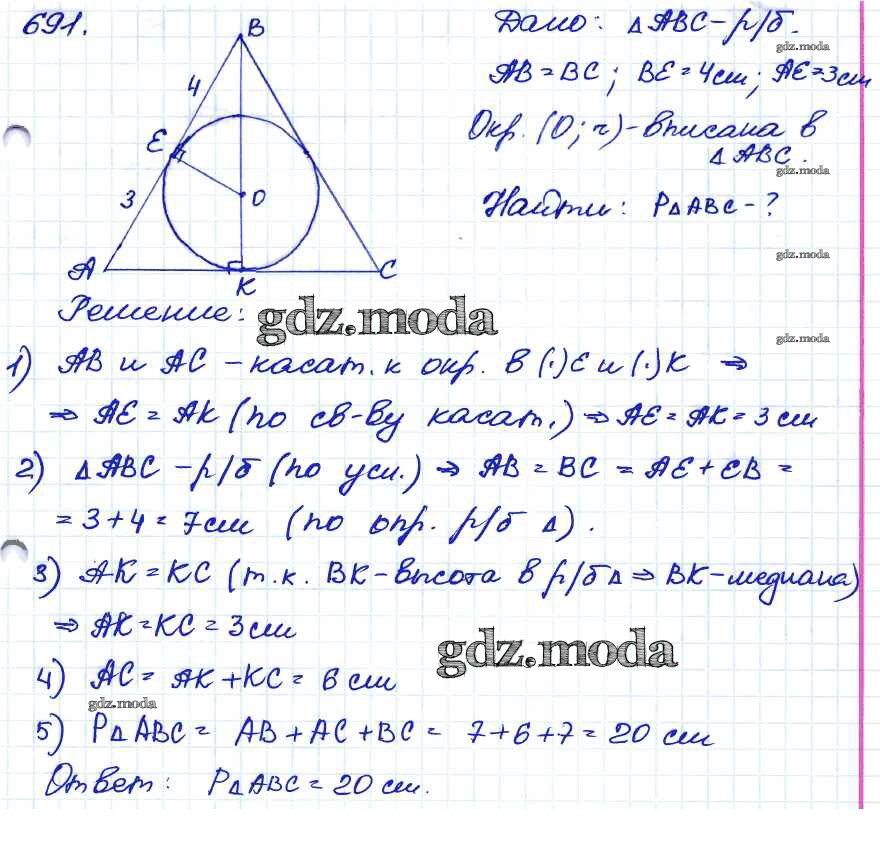 691.
Дано: △ABC – р/б.
gdz.moda
AB = BC; BE = 4см; AE = 3см
Окр. (O; r) – вписана в
△ABC.
gdz.moda
Найти: P△ABC – ?
gdz.moda
B
4
E
3
O
A
K
C
Решение:
gdz.moda
gdz.moda
1) AB и AC – касат. к окр. в (·)E и (·)K ⇒
⇒ AE = AK (по св-ву касат.) ⇒ AE = AK = 3 см
2) △ABC – р/б (по усл.) ⇒ AB = BC = AE + EB =
= 3 + 4 = 7см (по опр. р/б △).
3) AK = KC (т.к. BK – высота в р/б △ ⇒ BK – медиана)
⇒ AK = KC = 3см
gdz.moda
4) AC = AK + KC = 6 см
gdz.moda
5) P△ABC = AB + AC + BC = 7 + 6 + 7 = 20 см
Ответ: P△ABC = 20 см.